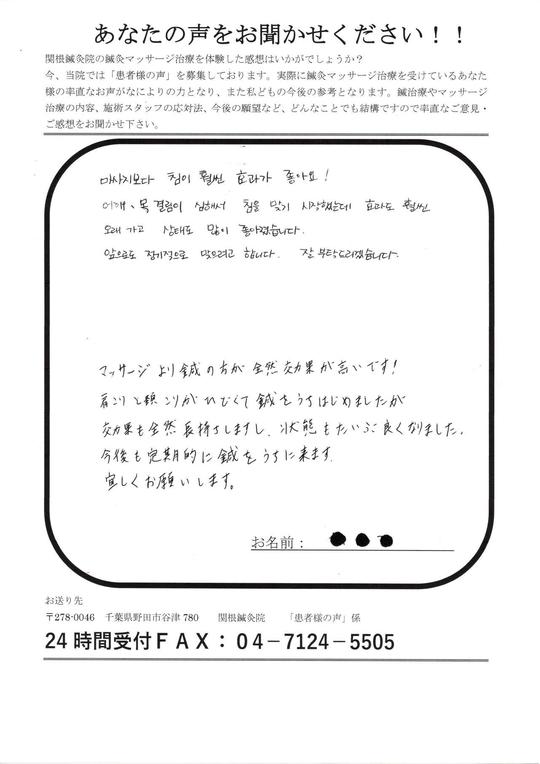 あなたの声をお聞かせください！！
関根鍼灸院の鍼灸マッサージ治療を体験した感想はいかがでしょうか？
今、当院では「患者様の声」を募集しております。実際に鍼灸マッサージ治療を受けているあなた
様の率直なお声がなによりの力となり、また私どもの今後の参考となります。鍼治療やマッサージ
治療の内容、施術スタッフの応対法、今後の願望など、どんなことでも結構ですので率直なご意見・
ご感想をお聞かせ下さい。
마사지보다 침이 훨씬 효과가 좋아요!
어깨、목 결림이 심해서 침을 맞기 시작했는데 효과도 훨씬
오래 가고 상태도 많이 좋아졌습니다.
앞으로도 정기적으로 맞으려고 합니다. 잘 부탁드리겠습니다.
マッサージより鍼の方が全然効果が高いです!
肩こりと頚こりがひどくて鍼をうちはじめましたが
効果も全然長持ちしますし、状態もだいぶ良くなりました。
今後も定期的に鍼をうちに来ます.
宜しくお願いします。
お名前：
お送り先
〒278-0046 千葉県野田市谷津 780 関根鍼灸院 「患者様の声」係
24 時間受付ＦＡＸ：０４－7124－5505